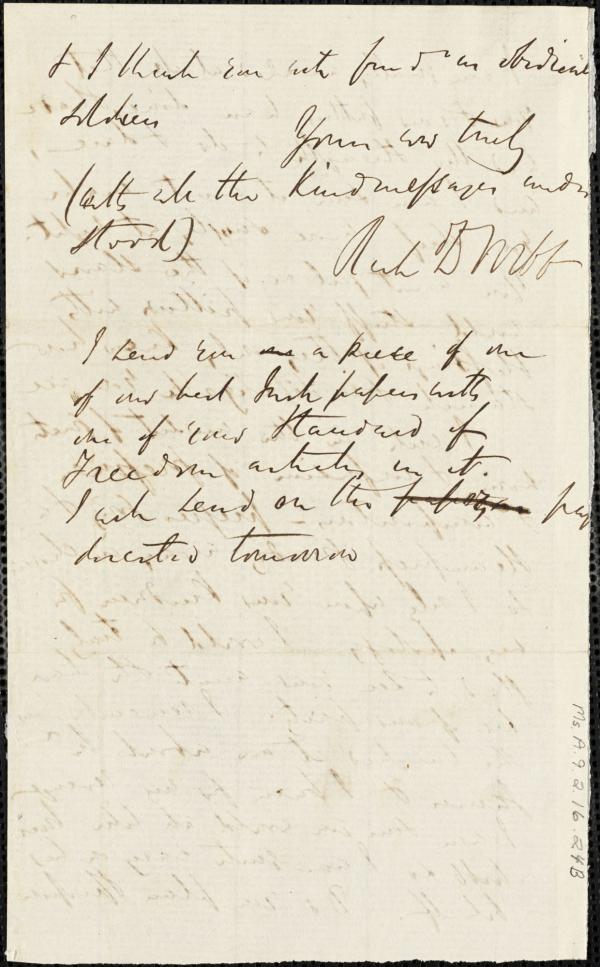 & I think you will find us obedient
soldiers
Yours ever truly
(with all the kind messages under
stood)
Rich D Webb
I send you a piece of one
of our best Irish papers with
one of your Standard of
Freedom articles in it.
I will send on the
directed tomorrow
Ms. A. 9. 2. 16. 24B